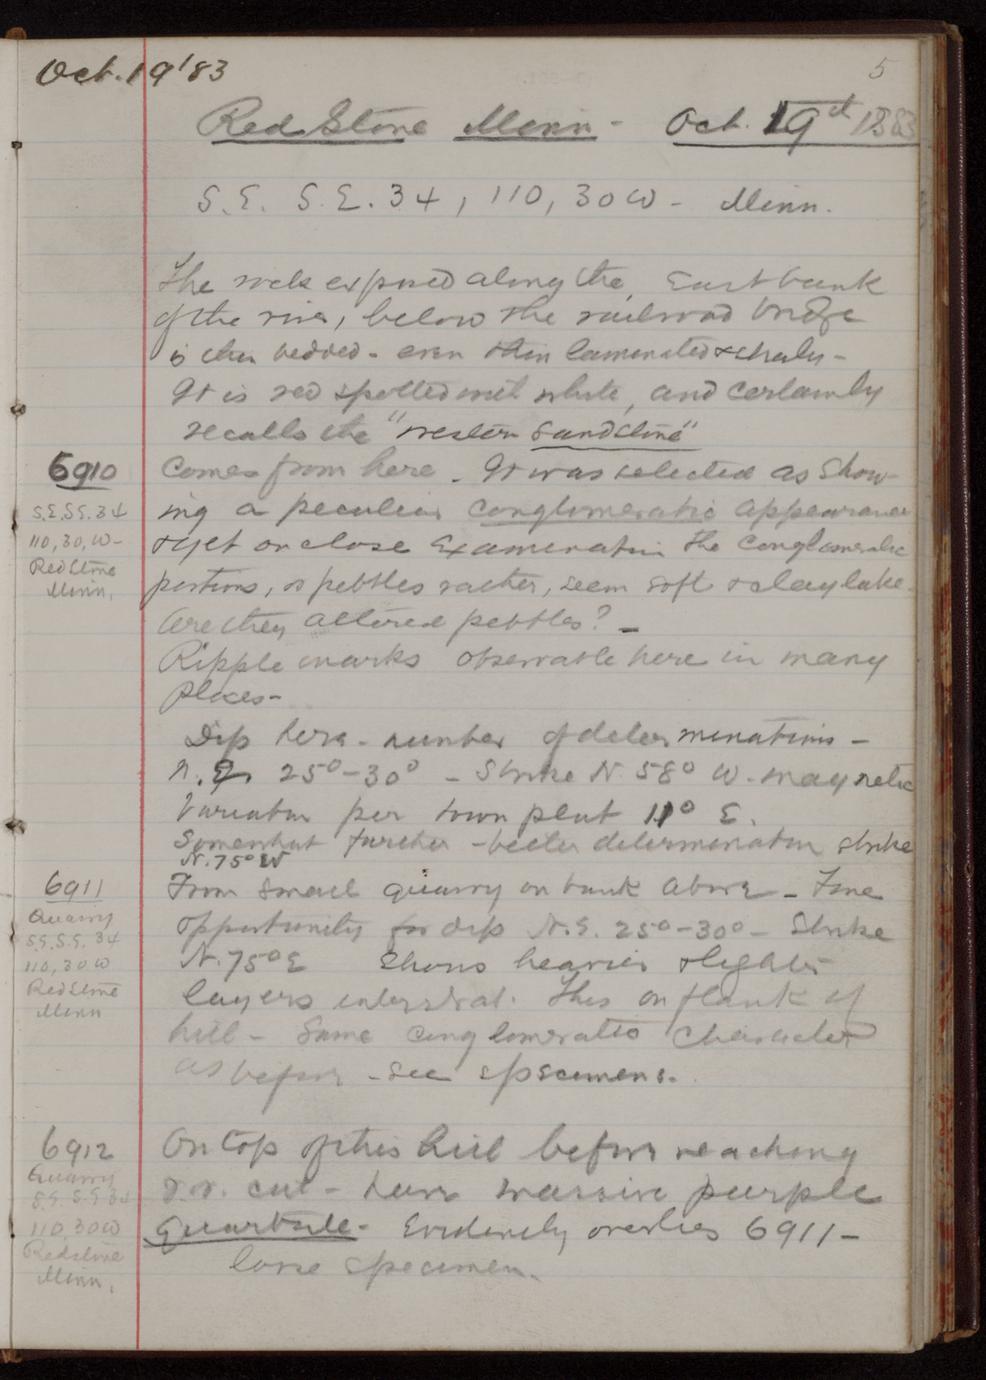 Oct. 19 '83
5
Red Stone Minn - Oct. 19th 1883
S.E. S.E. 34, 110, 30W - Minn.
The rock exposed along the East bank
of the river, below the railroad bridge
is thin bedded - even thin laminated & shaly -
It is red spotted with white, and certainly
recalls the "western sandstone"
6910 comes from here. It was selected as show-
ing a peculiar conglomeratic appearance
& yet on close examination the conglomeratic
portions, or pebbles rather, seem soft & claylike.
Are they altered pebbles? -
Ripple marks observable here in many
places -
S.E. S.E. 34
110, 30, W -
Red Stone
Minn.
Dip here - number of determinations -
N.E. 25° - 30° - Strike N. 58° W. magnetic
Variation per town plat 11° E.
Somewhat further - better determination strike
N. 75° W
6911 From small quarry on bank above - Fine
opportunity for dip N.E. 25° - 30° - Strike
N. 75° E Shows heavier & lighter
layers interstrat. This on flank of
hill - Same conglomeratic character
as before - see specimens.
Quarry
S.E. S.E. 34
110, 30 W
Red Stone
Minn
6912 On top of this hill before reaching
r.r. cut - have massive purple
quartzite - Evidently overlies 6911 -
loose specimen.
Quarry
S.E. S.E. 34
110, 30W
Redstone
Minn.